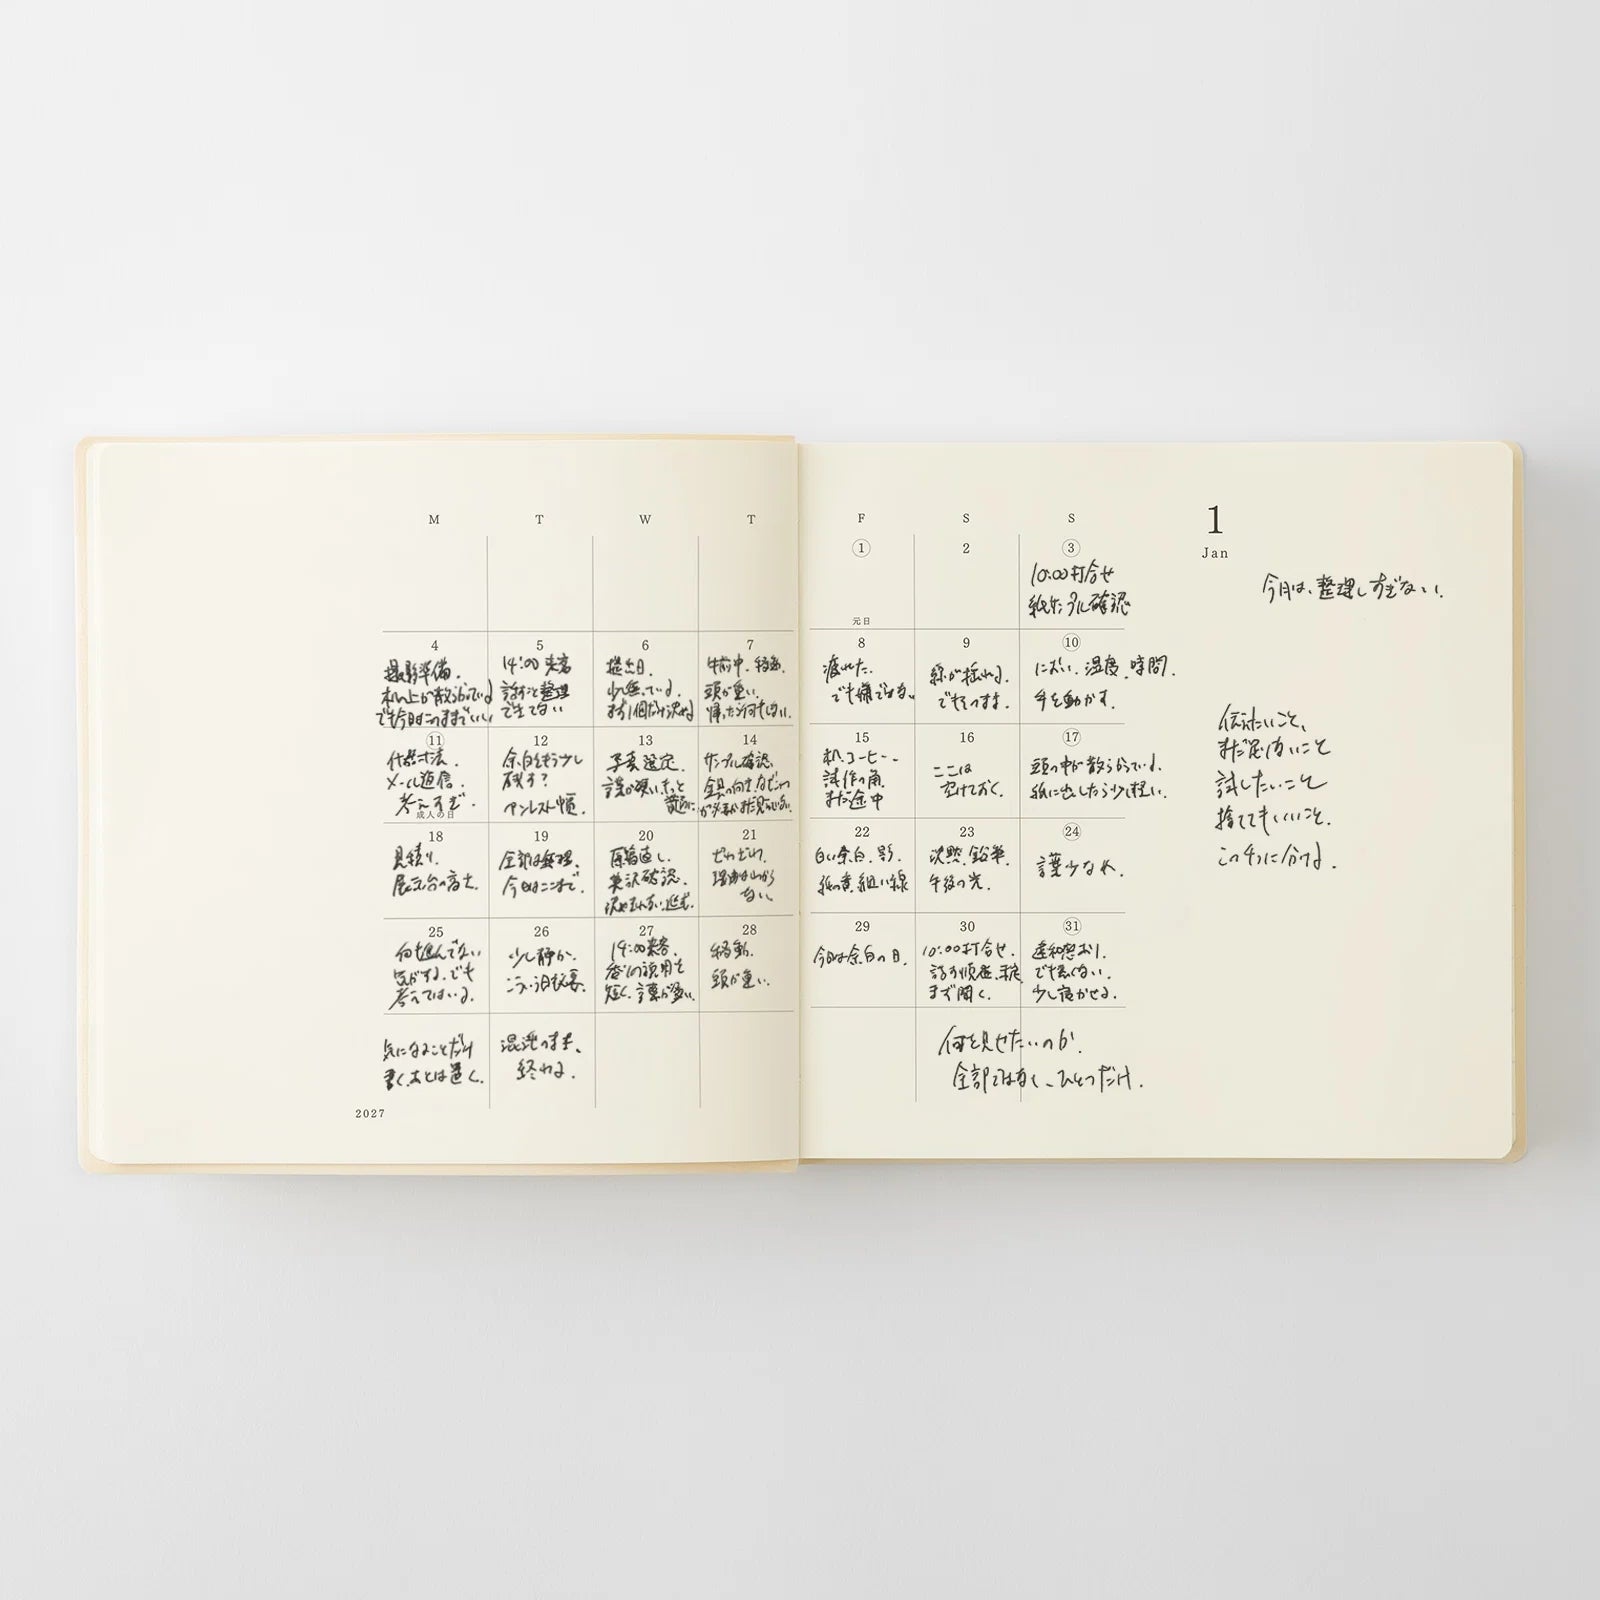 M T W T F S S
1
Jan
1 2 3
元日
10:00打合せ
紙サンプル確認
今月は、整理しすぎない.
4 5 6 7 8 9 10
撮影準備.
机の上が散らかっている
でも今日はこのままでいい
14:00 来客
話すこと整理
できてない
提出日.
少し焦っている.
まず1個だけ決める
午前中、移動.
頭が重い.
帰ったら何もしない.
疲れた.
でも嫌ではない
線が揺れる.
でもそのまま.
におい、温度、時間.
手を動かす.
伝えたいこと、
まだ足りないこと
試したいこと
捨ててもいいこと.
この4つに分ける.
11 12 13 14 15 16 17
什器寸法.
メール返信.
考えすぎ.
成人の日
余白をもう少し
残す?
写真選定.
サンプル確認.
机、コーヒー、
試作の角.
まだ途中
ここは
空けておく.
頭の中が散らかっている.
紙に出したら少し軽い.
18 19 20 21 22 23 24
見積り.
展示台の高さ.
全部は無理.
今日はここまで.
原稿直し.
英訳確認.
だれだれ.
理由はわから
ない.
白い余白、影.
紙の黄、細い線
沈黙、鉛筆.
午後の光.
言葉少なめ.
25 26 27 28 29 30 31
何も進んでない
気がする.でも
考えてはいる.
少し静か.
こういう日も必要.
14:00来客.
短く.言葉が多い.
移動.
頭が重い.
今日は余白の日.
10:00打合せ.
まず聞く.
違和感あり.
でも悪くない.
少し寝かせる.
気になることだけ
書く.あとは置く.
混沌のまま、
終わる.
何を見せたいのか.
全部ではなく、ひとつだけ.
2027